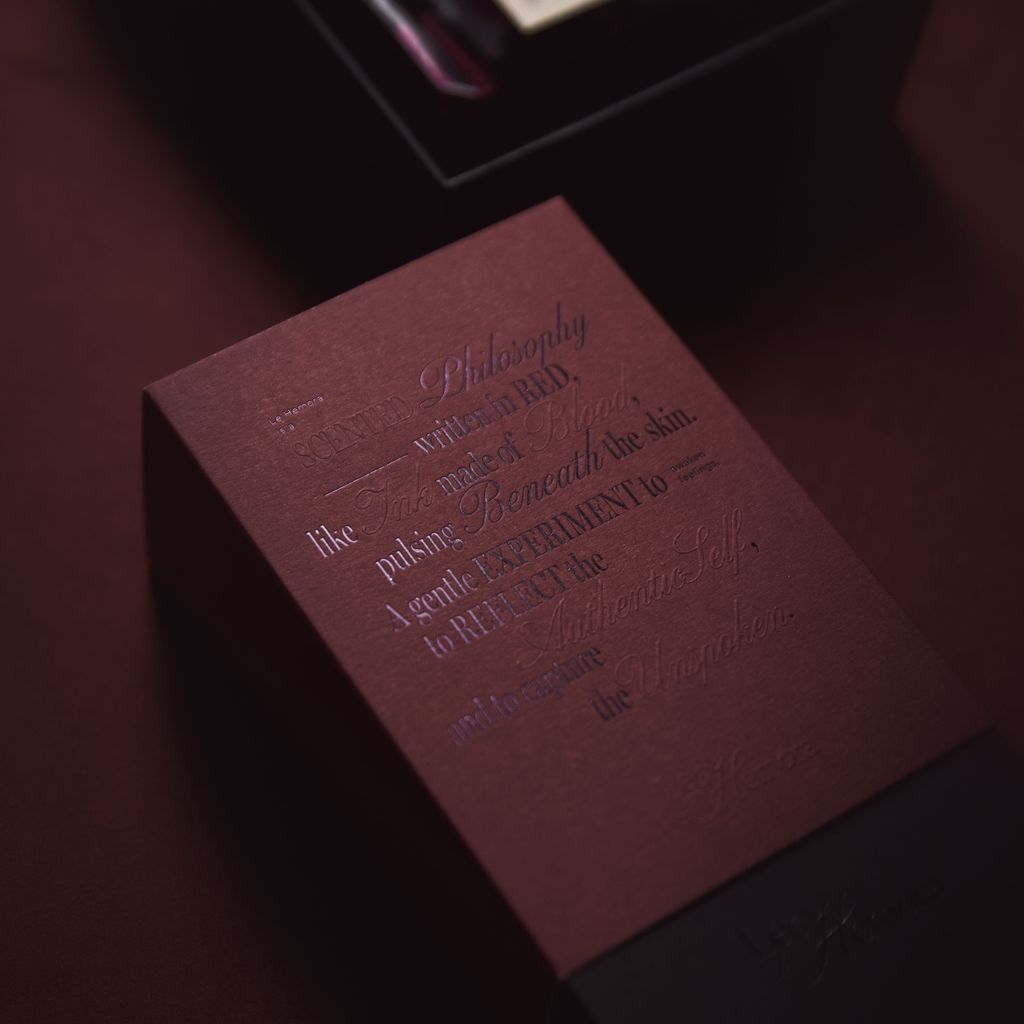 Le Hemora
is a
SCENTED Philosophy
written in RED,
like Ink made of Blood,
pulsing Beneath the skin.
A gentle EXPERIMENT to awaken feelings,
to REFLECT the
Authentic Self,
and to capture
the Unspoken.
Le Hemora
Le Hemora